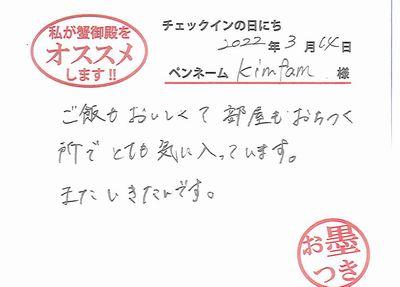 私が蟹御殿を
オススメ
します!!
チェックインの日にち
2022年3月14日
ペンネーム kimfam 様
ご飯もおいしくて部屋もおちつく
所でとても気に入っています。
またいきたいです。
お墨
つき